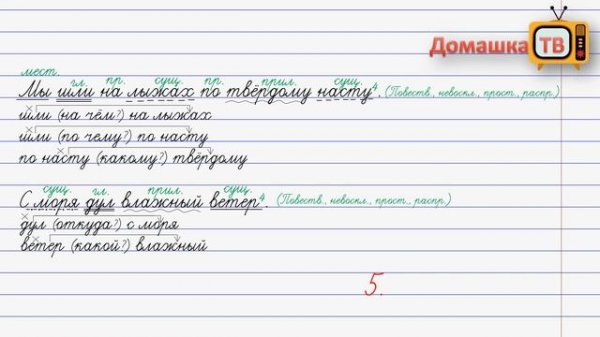 Домашка ТВ
мест. гл. пр. сущ. пр. прил. сущ.
Мы шли на лыжах по твёрдому насту⁴. (Повеств., невоскл., прост., распр.)
шли (на чём?) на лыжах
шли (по чему?) по насту
по насту (какому?) твёрдому
сущ. гл. прил. сущ.
С моря дул влажный ветер⁴. (Повеств., невоскл., прост., распр.)
дул (откуда?) с моря
ветер (какой?) влажный
5.